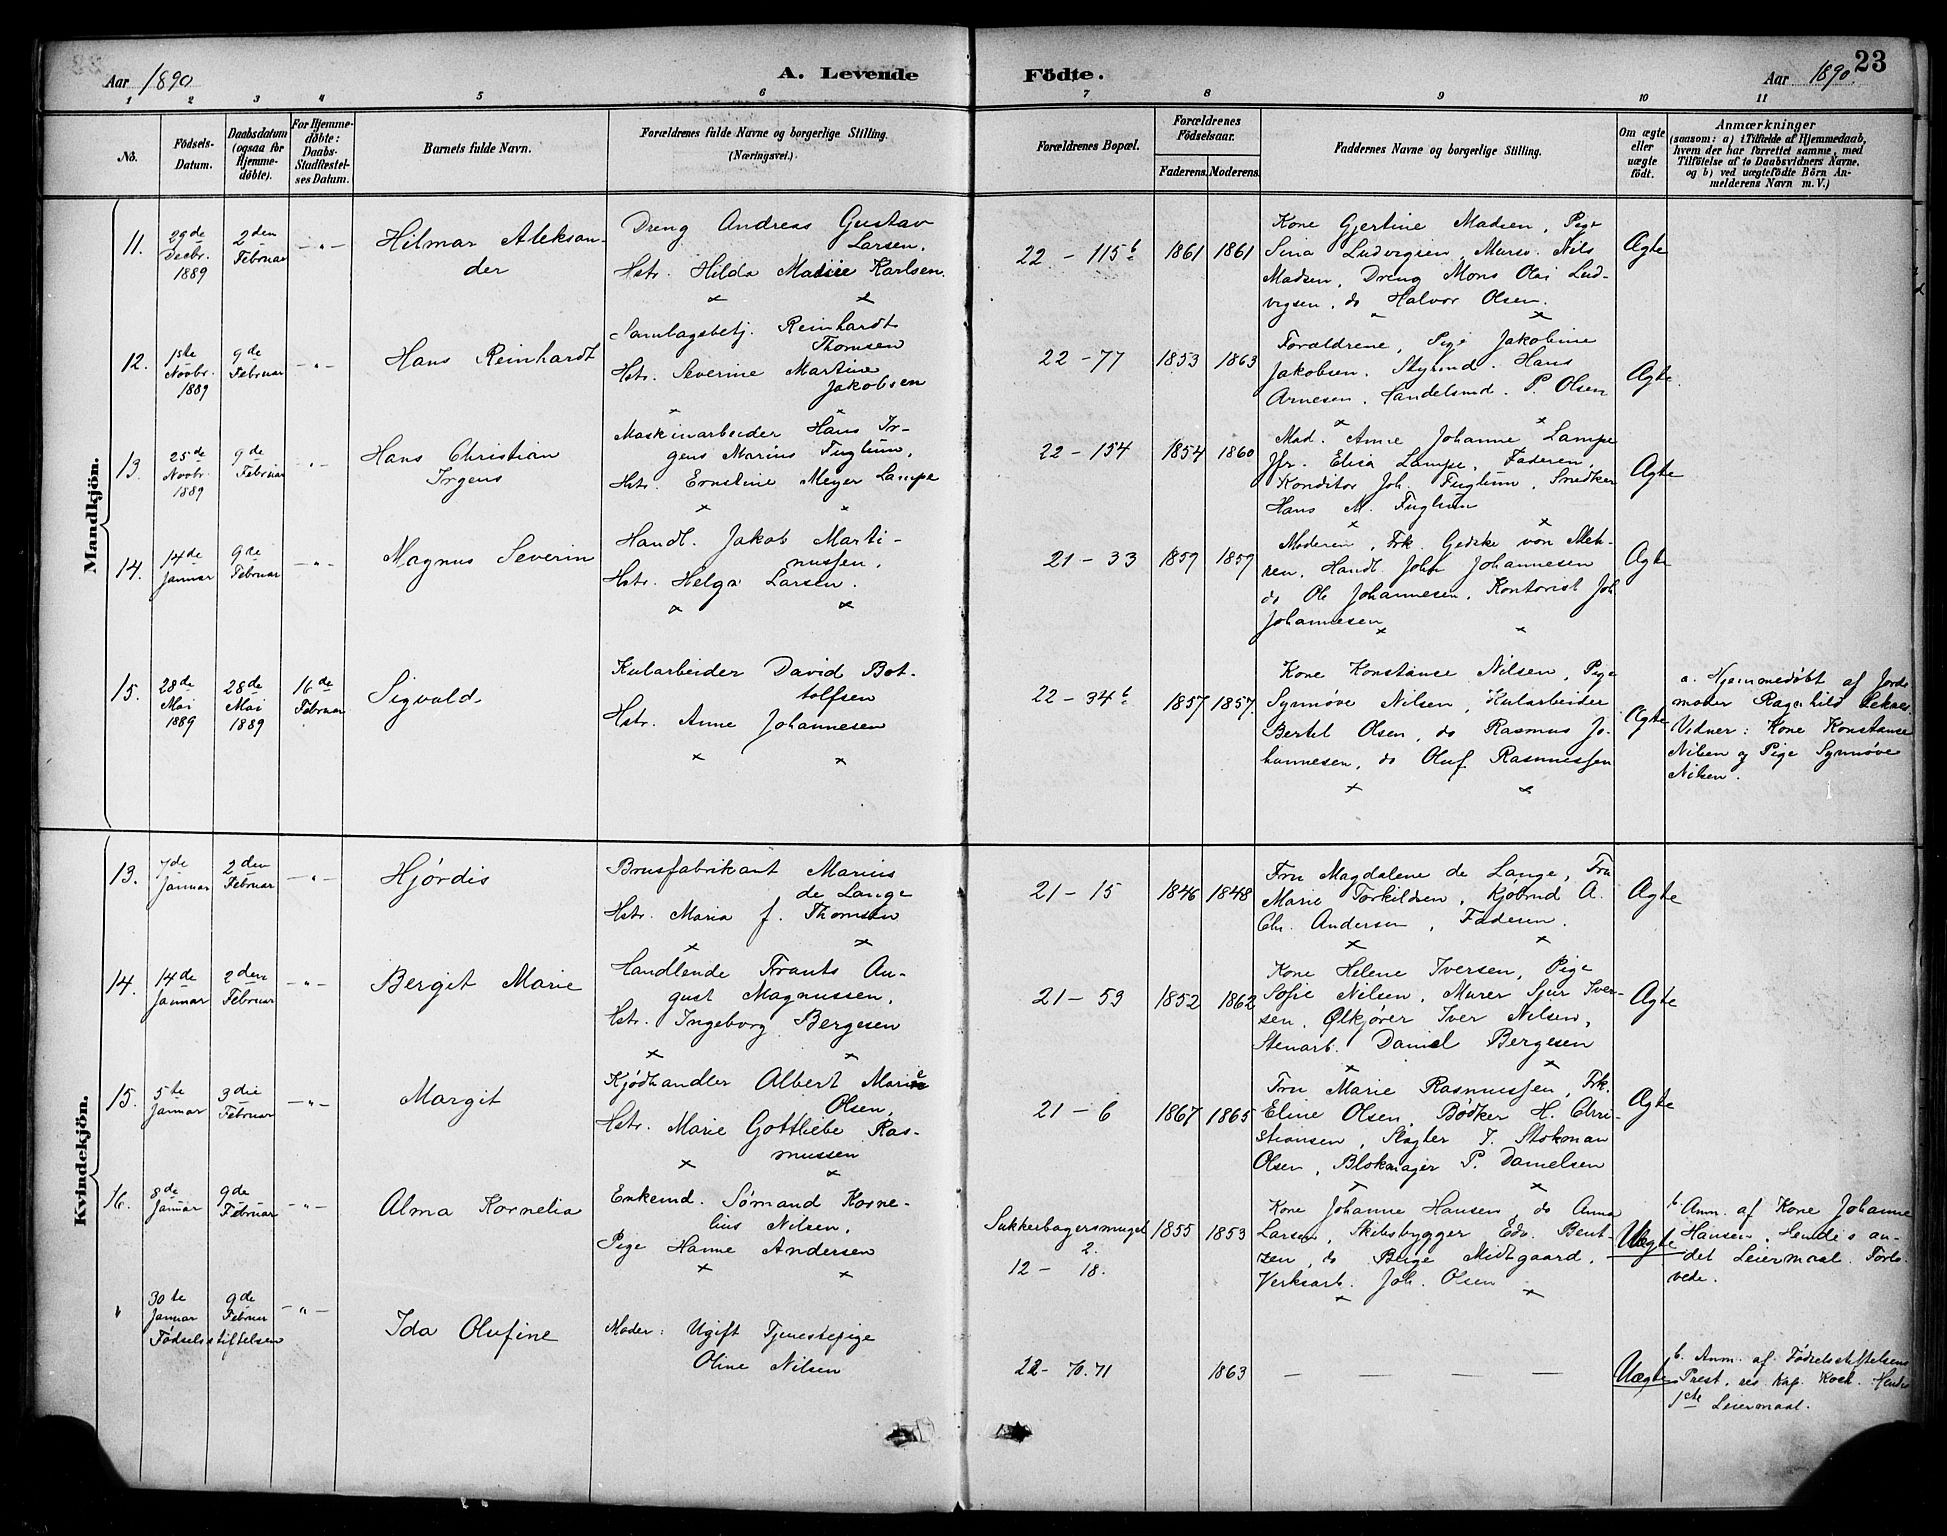 Aar 1890
A. Levende Födte.
Aar 1890.
23
1 2 3 4 5 6 7 8 9 10 11
No.
Födsels-
Datum.
Daabsdatum
(ogsaa for
Hjemme-
döbte).
For Hjemme-
döbte:
Daabs-
Stadfæstel-
ses Datum.
Barnets fulde Navn.
Forældrenes fulde Navne og borgerlige Stilling.
(Næringsvei.)
Forældrenes Bopæl.
Forældrenes
Födselsaar.
Faderens. Moderens.
Faddernes Navne og borgerlige Stilling.
Om ægte
eller
uægte
födt.
Anmærkninger
(saasom: a) i Tilfælde af Hjemmedaab,
hvem der har forrettet samme, med
Tilföielse af to Daabsvidners Navne,
og b) ved uægtefödte Börn An-
melderens Navn m. V.)
Mandkjön.
11.
29de
Decbr.
1889
2den
Februar
— " —
Hilmar Aleksan-
der
Dreng Andreas Gustav
Larsen.
Hstr. Hilda Marie Karlsen.
22 – 115b
1861
1861
Kone Gjertine Madsen, Pige
Sina Ludvigsen, Nils
Madsen, Dreng Mons Olai Lud-
vigsen, do Halvor Olsen.
Ægte
12.
1ste
Novbr.
1889
9de
Februar
— " —
Hans Reinhardt
Samlagsbetj. Reinhardt
Thomsen
Hstr. Severine Martine
Jakobsen
22 – 77
1853
1863
Forældrene, Pige Jakobine
Jakobsen, Styrmd. Hans
Arnesen, Handelsmd. P. Olsen
Ægte
13.
25de
Novbr.
1889
9de
Februar
— " —
Hans Christian
Irgens
Maskinarbeider Hans Ir-
gens Marius Fuglum,
Hstr. Ernstine Meyer Lampe
22 – 154
1854
1860
Mad. Anne Johanne Lampe
Jfr. Elisa Lampe, Faderen,
Konditor Joh. Fuglum, Snedker
Hans M. Fuglum
Ægte
14.
14de
Januar
9de
Februar
— " —
Magnus Severin
Handl. Jakob Marti-
nussen,
Hstr. Helga Larsen.
21 – 33
1859
1859
Moderen, Frk. Gedske von Meh-
ren, Handl. John Johannesen
do Ole Johannesen, Kontorist Joh
Johannesen
Ægte
15.
28de
Mai
1889
28de
Mai
1889
16de
Februar
Sigvald
Kularbeider David Bot-
tolfsen
Hstr. Anne Johannesen
22 – 34b
1857
1857.
Kone Konstanse Nilsen, Pige
Synnøve Nilsen, Kularbeider
Bertel Olsen, do Rasmus Jo-
hannesen, do Oluf Rasmussen
Ægte
a. Hjemmedøbt af Jorde
moder Ragnhild
Vidner: Kone Konstanse
Nilsen og Pige Synnøve
Nilsen.
Kvindekjön.
13.
7de
Januar
2den
Februar
— " —
Hjørdis
Brusfabrikant Marius
de Lange
Hstr. Maria f. Thomsen
21 – 15
1846
1848
Fru Magdalene de Lange, Fru
Marie Torkildsen, Kjøbmd A.
Chr. Andersen, Faderen.
Ægte
14.
14de
Januar
2den
Februar
— " —
Bergit Marie
Handlende Frants Au-
gust Magnussen,
Hstr. Ingeborg Bergesen
21 – 59
1852
1862
Kone Helene Iversen, Pige
Sofie Nilsen, Murer Sjur Iver-
sen, Ølkjører Iver Nilsen,
Stenarb. Daniel Bergesen
Ægte
15.
5te
Januar
3die
Februar
— " —
Margit
Kjødhandler Albert
Olsen,
Hstr. Marie Gottliebe Ras-
mussen
21 – 6
1867
1865
Fru Marie Rasmussen, Frk.
Eline Olsen, Bødker H. Chri-
stiansen, Slagter J. Stokman
Olsen, Blokmager P. Danielsen
Ægte
16.
8de
Januar
9de
Februar
— " —
Alma Kornelia
Enkemd. Sømand Korne-
lius Nilsen,
Pige Hanne Andersen
Sukkerbagersmuget
2.
12 – 18.
1855
1853
Kone Johanne Hansen, do Anna
Larsen, Skibsbygger Edv. Bent-
zen, do Berge Midtgaard,
Verksarb. Joh. Olsen
Uægte
b. Anm. af Kone Johanne
Hansen, Hendes an-
det Leiermaal. Forlo-
vede.
"
30te
Januar
Fødselsstiftelsen
9de
Februar
— " —
Ida Olufine
Moder: Ugift Tjenestepige
Oline Nilsen
22 – 70.71
1863
— — — —
Uægte
b. Anm. af Fødselsstiftelsens
Prest, res Kap. Koch. Hendes
1ste Leiermaal.